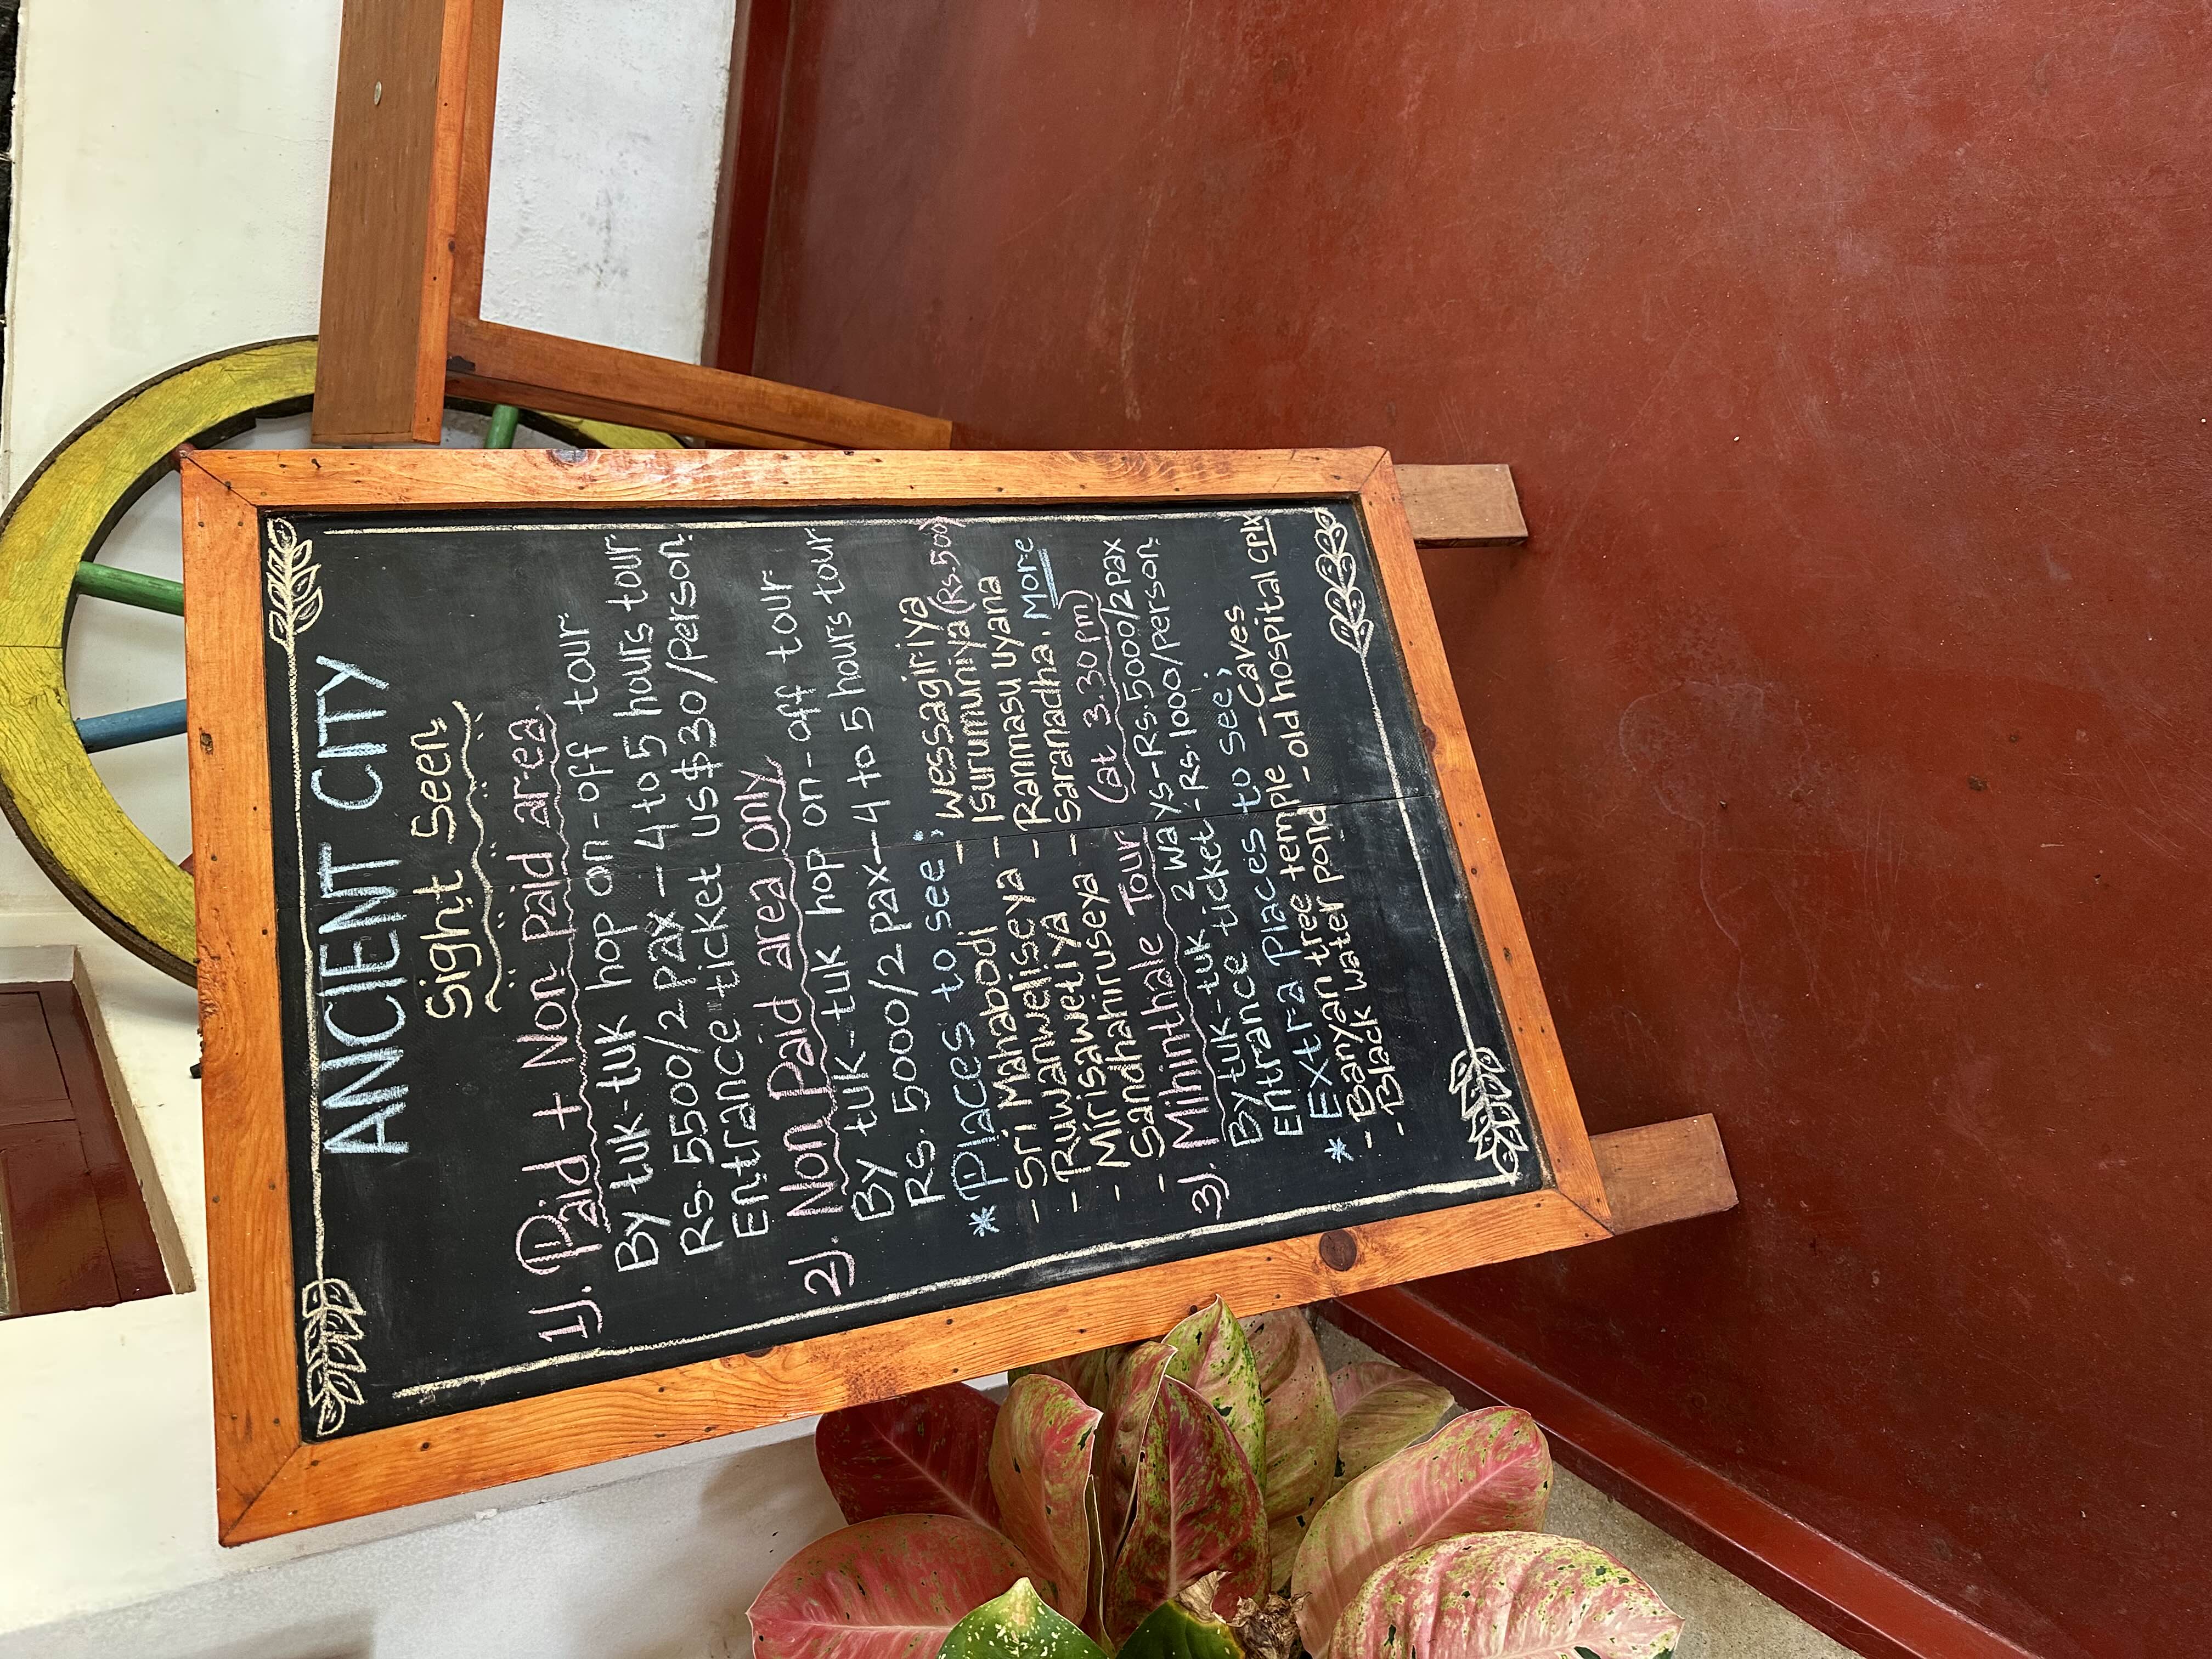 ANCIENT CITY
Sight Seen
1). Paid + Non Paid area
By tuk-tuk hop on-off tour
Rs. 5500/2 Pax - 4 to 5 hours tour
Entrance ticket us$30/Person
2). Non Paid area only
By tuk-tuk hop on-off tour
Rs. 5000/2 Pax - 4 to 5 hours tour
* Places to see;
- Sri Mahabodi - Wessagiriya
- Ruwanweliseya - Isurumuniya (Rs.500)
- Mirisawetiya - Ranmasu uyana
- Sandhahiruseya - Saranadha. More
3). Mihinthale Tour (at 3.30 pm)
By tuk-tuk 2 ways - Rs.5000/2 Pax
Entrance ticket - Rs.1000/Person
* Extra Places to see;
- Banyan tree temple - Caves
- Black water pond - old hospital cplx